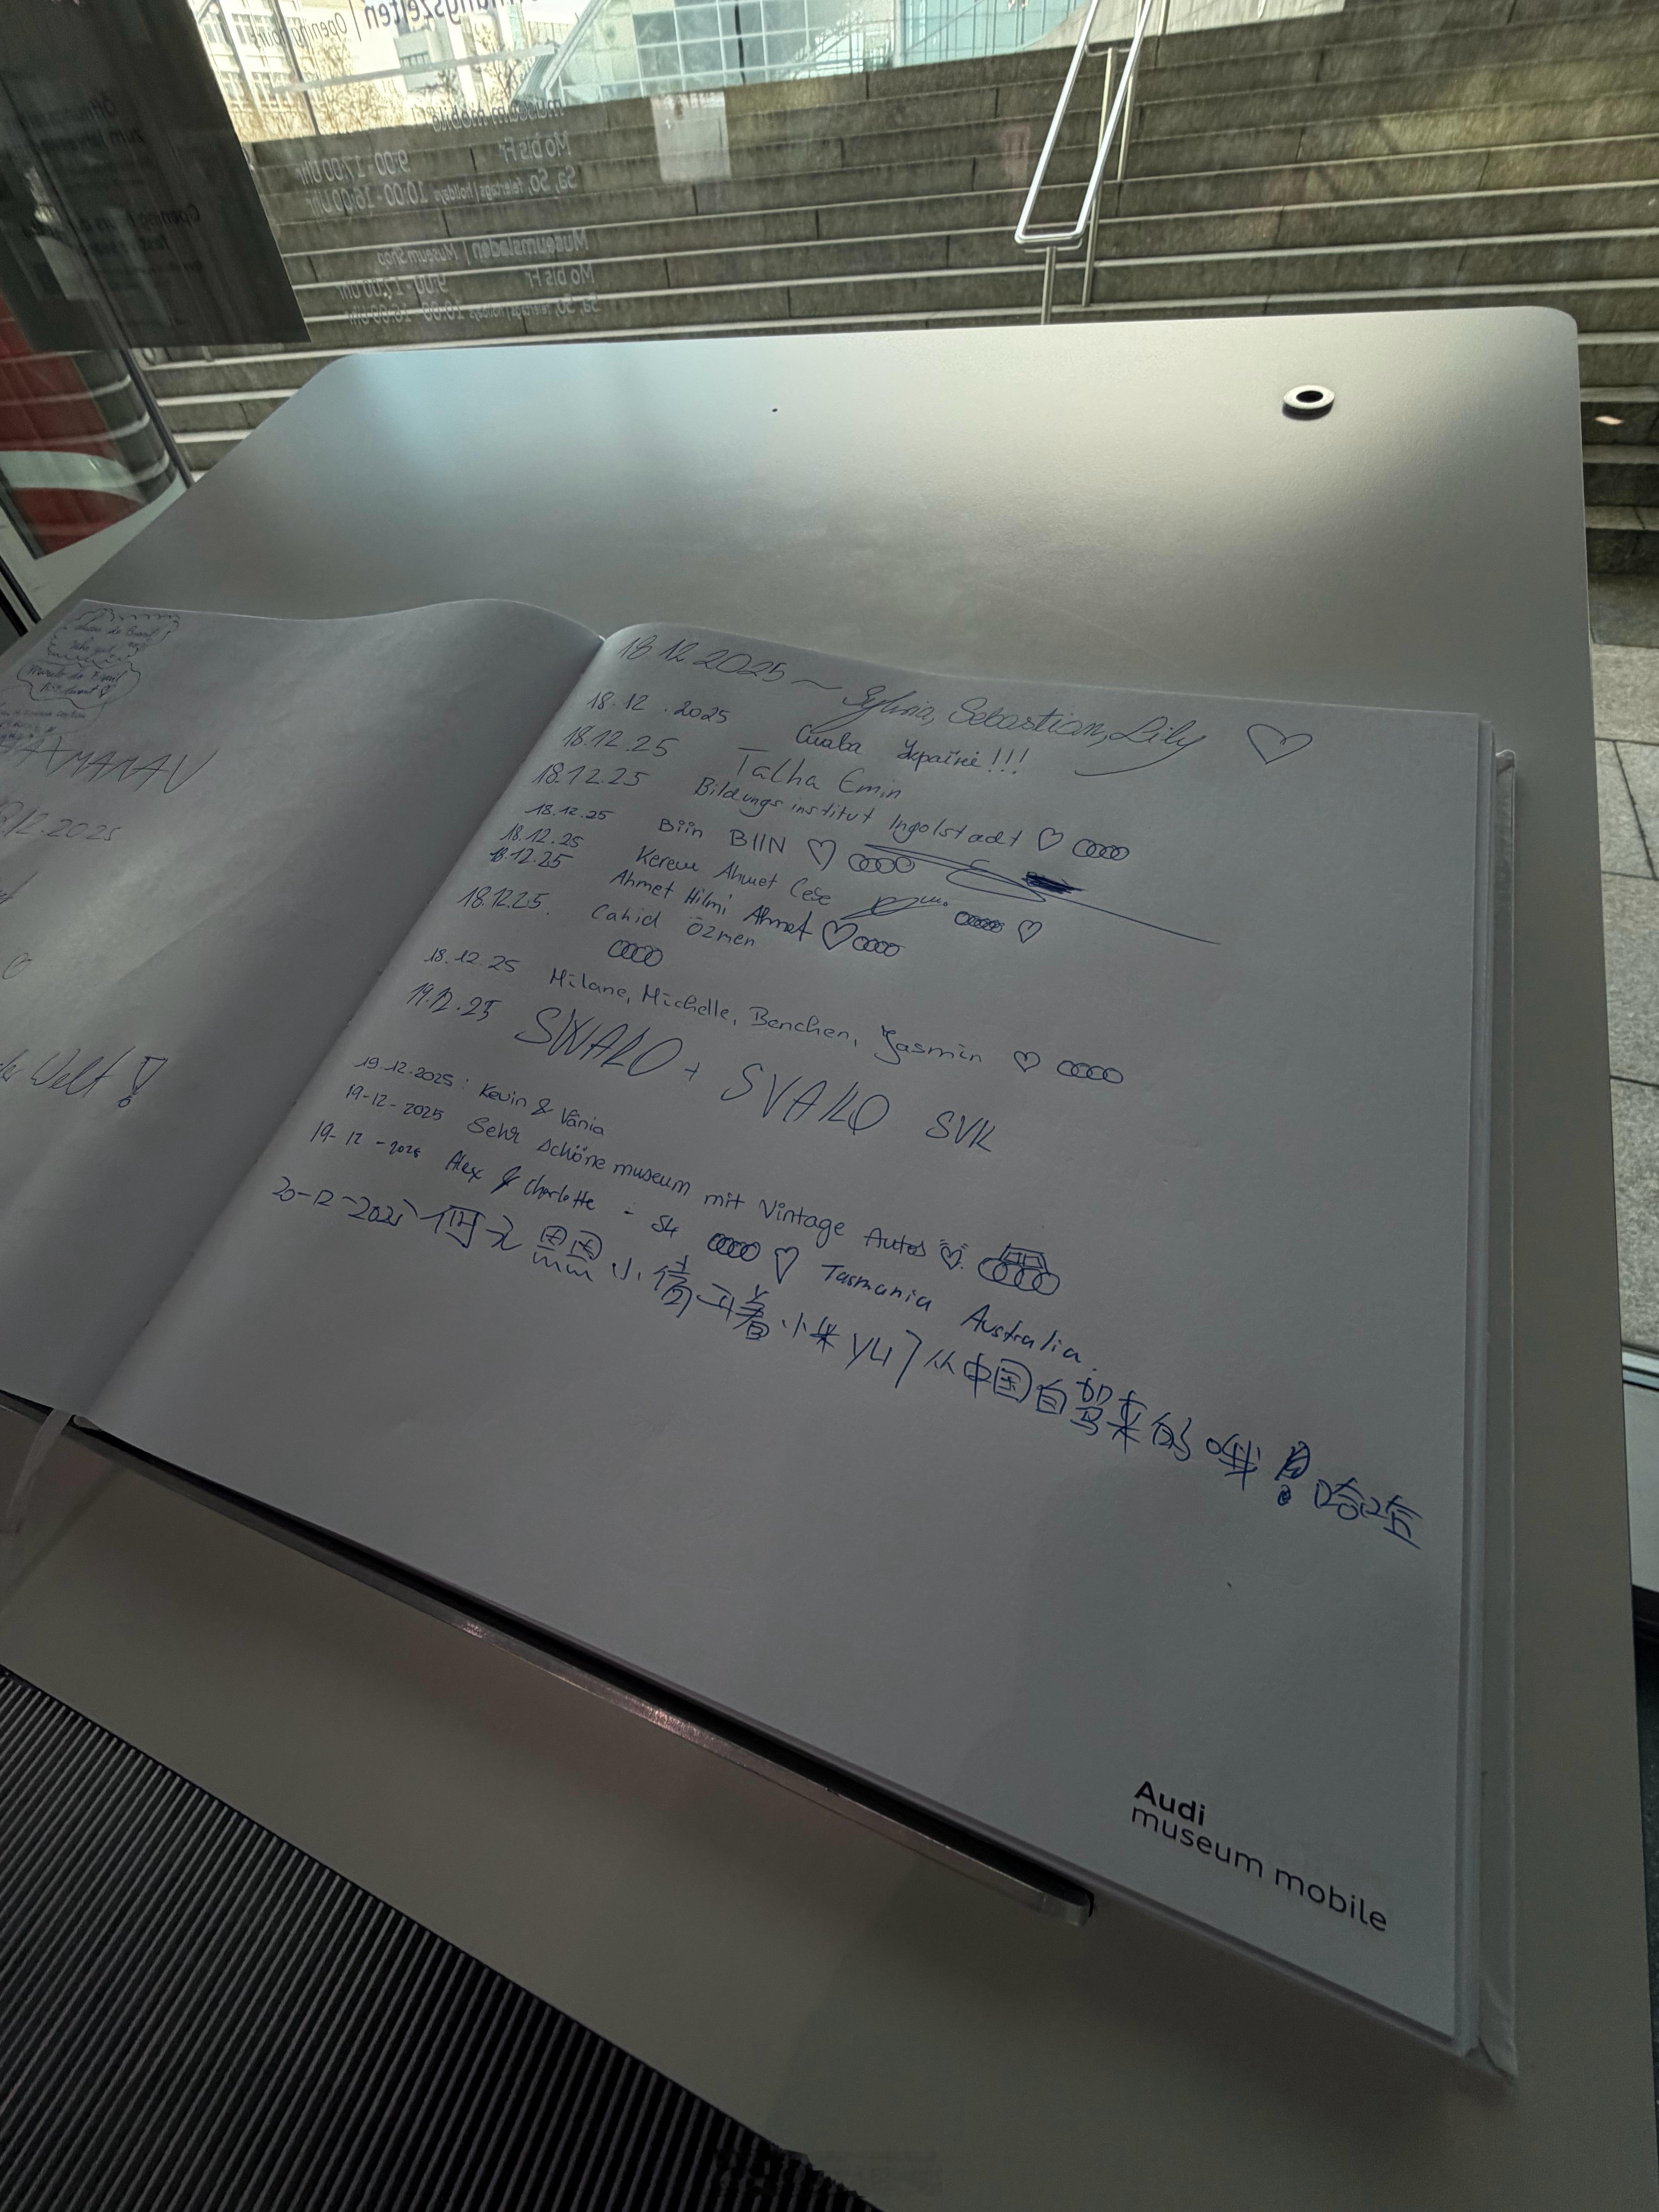 museum mobile
Mo bis Fr 9:00-17:00 Uhr
Sa, So, feiertags | holidays 10:00-16:00 Uhr
Museumsladen | Museum Shop
Mo bis Fr
Sa, So, feiertags | holidays 10:00-16:00 Uhr
der Welt!
18.12.2025 ~ Sylvia, Sebastian, Lily ♡
18.12.2025 Слава Україні!!!
18.12.25 Talha Emin
18.12.25 Bildungsinstitut Ingolstadt ♡
18.12.25 Biin BIIN ♡
18.12.25 Kerem Ahmet
18.12.25 Ahmet Hilmi Ahmet ♡
18.12.25. Cahid Özmen
18.12.25 Milane, Michelle, Benchen, Yasmin ♡
19.12.25 SWARO + SVARO SVK
19.12.2025: Kevin & Vânia
19-12-2025 Sehr schöne museum mit Vintage Autos
19-12-2025 Alex & Charlotte - S4 ♡ Tasmania Australia.
20-12-2025 何 小倩 开着小米 YU7 从中国自驾来的哦! 哈哈
Audi
museum mobile